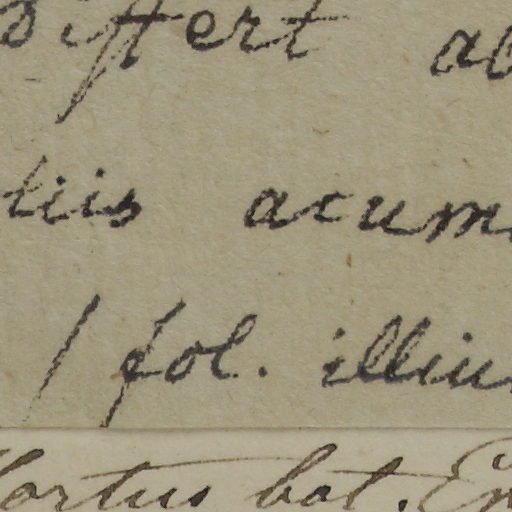 Differt ab
liis acum
/ fol. illiu
Hortus bot.